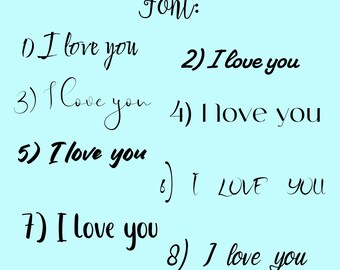 Font:
1) I love you
2) I love you
3) I love you
4) I love you
5) I love you
6) I LOVE YOU
7) I Love you
8) I love you